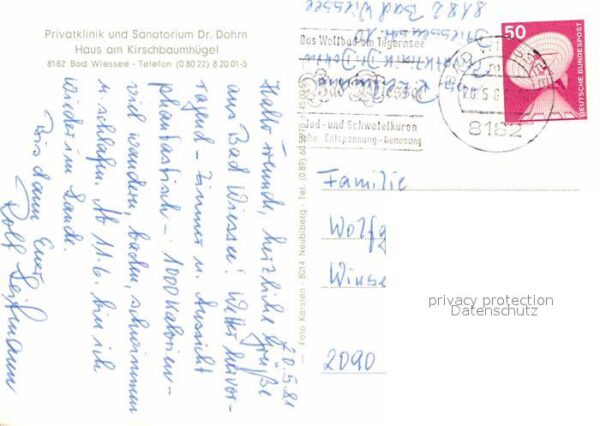 Privatklinik und Sanatorium Dr. Dohrn
Haus am Kirschbaumhügel
8182 Bad Wiessee - Telefon (0 80 22) 8 20 01-5
20.5.81
Hallo Freunde, herzliche Grüße
aus Bad Wiessee! Wetter hervor-
ragend - Zimmer u. Aussicht
phantastisch - 1000 Kalorien -
viel wandern, baden, schwimmen
u. schlafen. Ab 11.6. bin ich
wieder im Lande.
Bis dann Euer
Rolf
— Foto Karsten - 8014 Neubiberg - Tel. (0 89)
8182 Bad Wiessee
Das Weltbad am Tegernsee
Bad Wiessee
Jod- und Schwefelkuren
Entspannung - Genesung
8182
50
DEUTSCHE BUNDESPOST
Familie
Wolfg
Winse
2090
privacy protection
Datenschutz